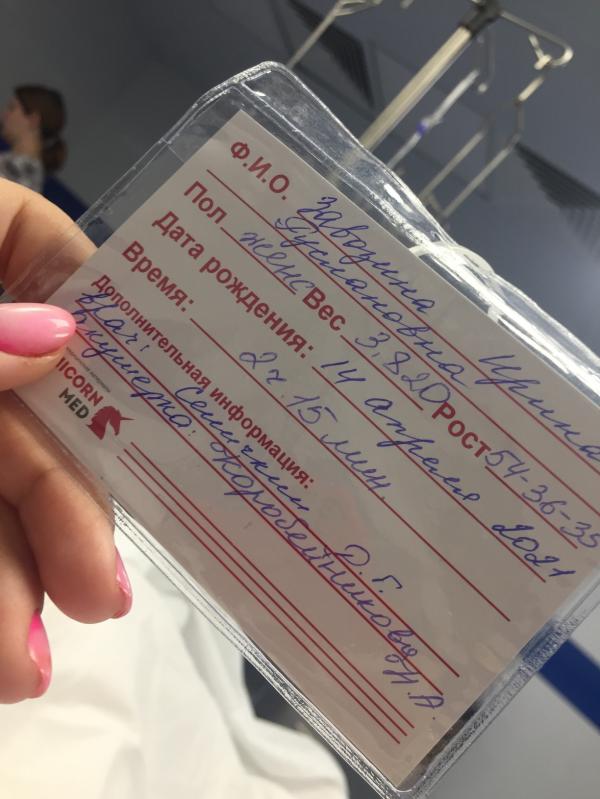 Ф.И.О. Заводина Ирина
Руслановна
Пол женс Вес 3,820 Рост 54-36-35
Дата рождения: 14 апреля 2021
Время: 2ч. 15 мин.
Дополнительная информация:
Врач: Сеничкин Р. Г.
Акушерка: Коробейникова Н.А.
NICORN
MED